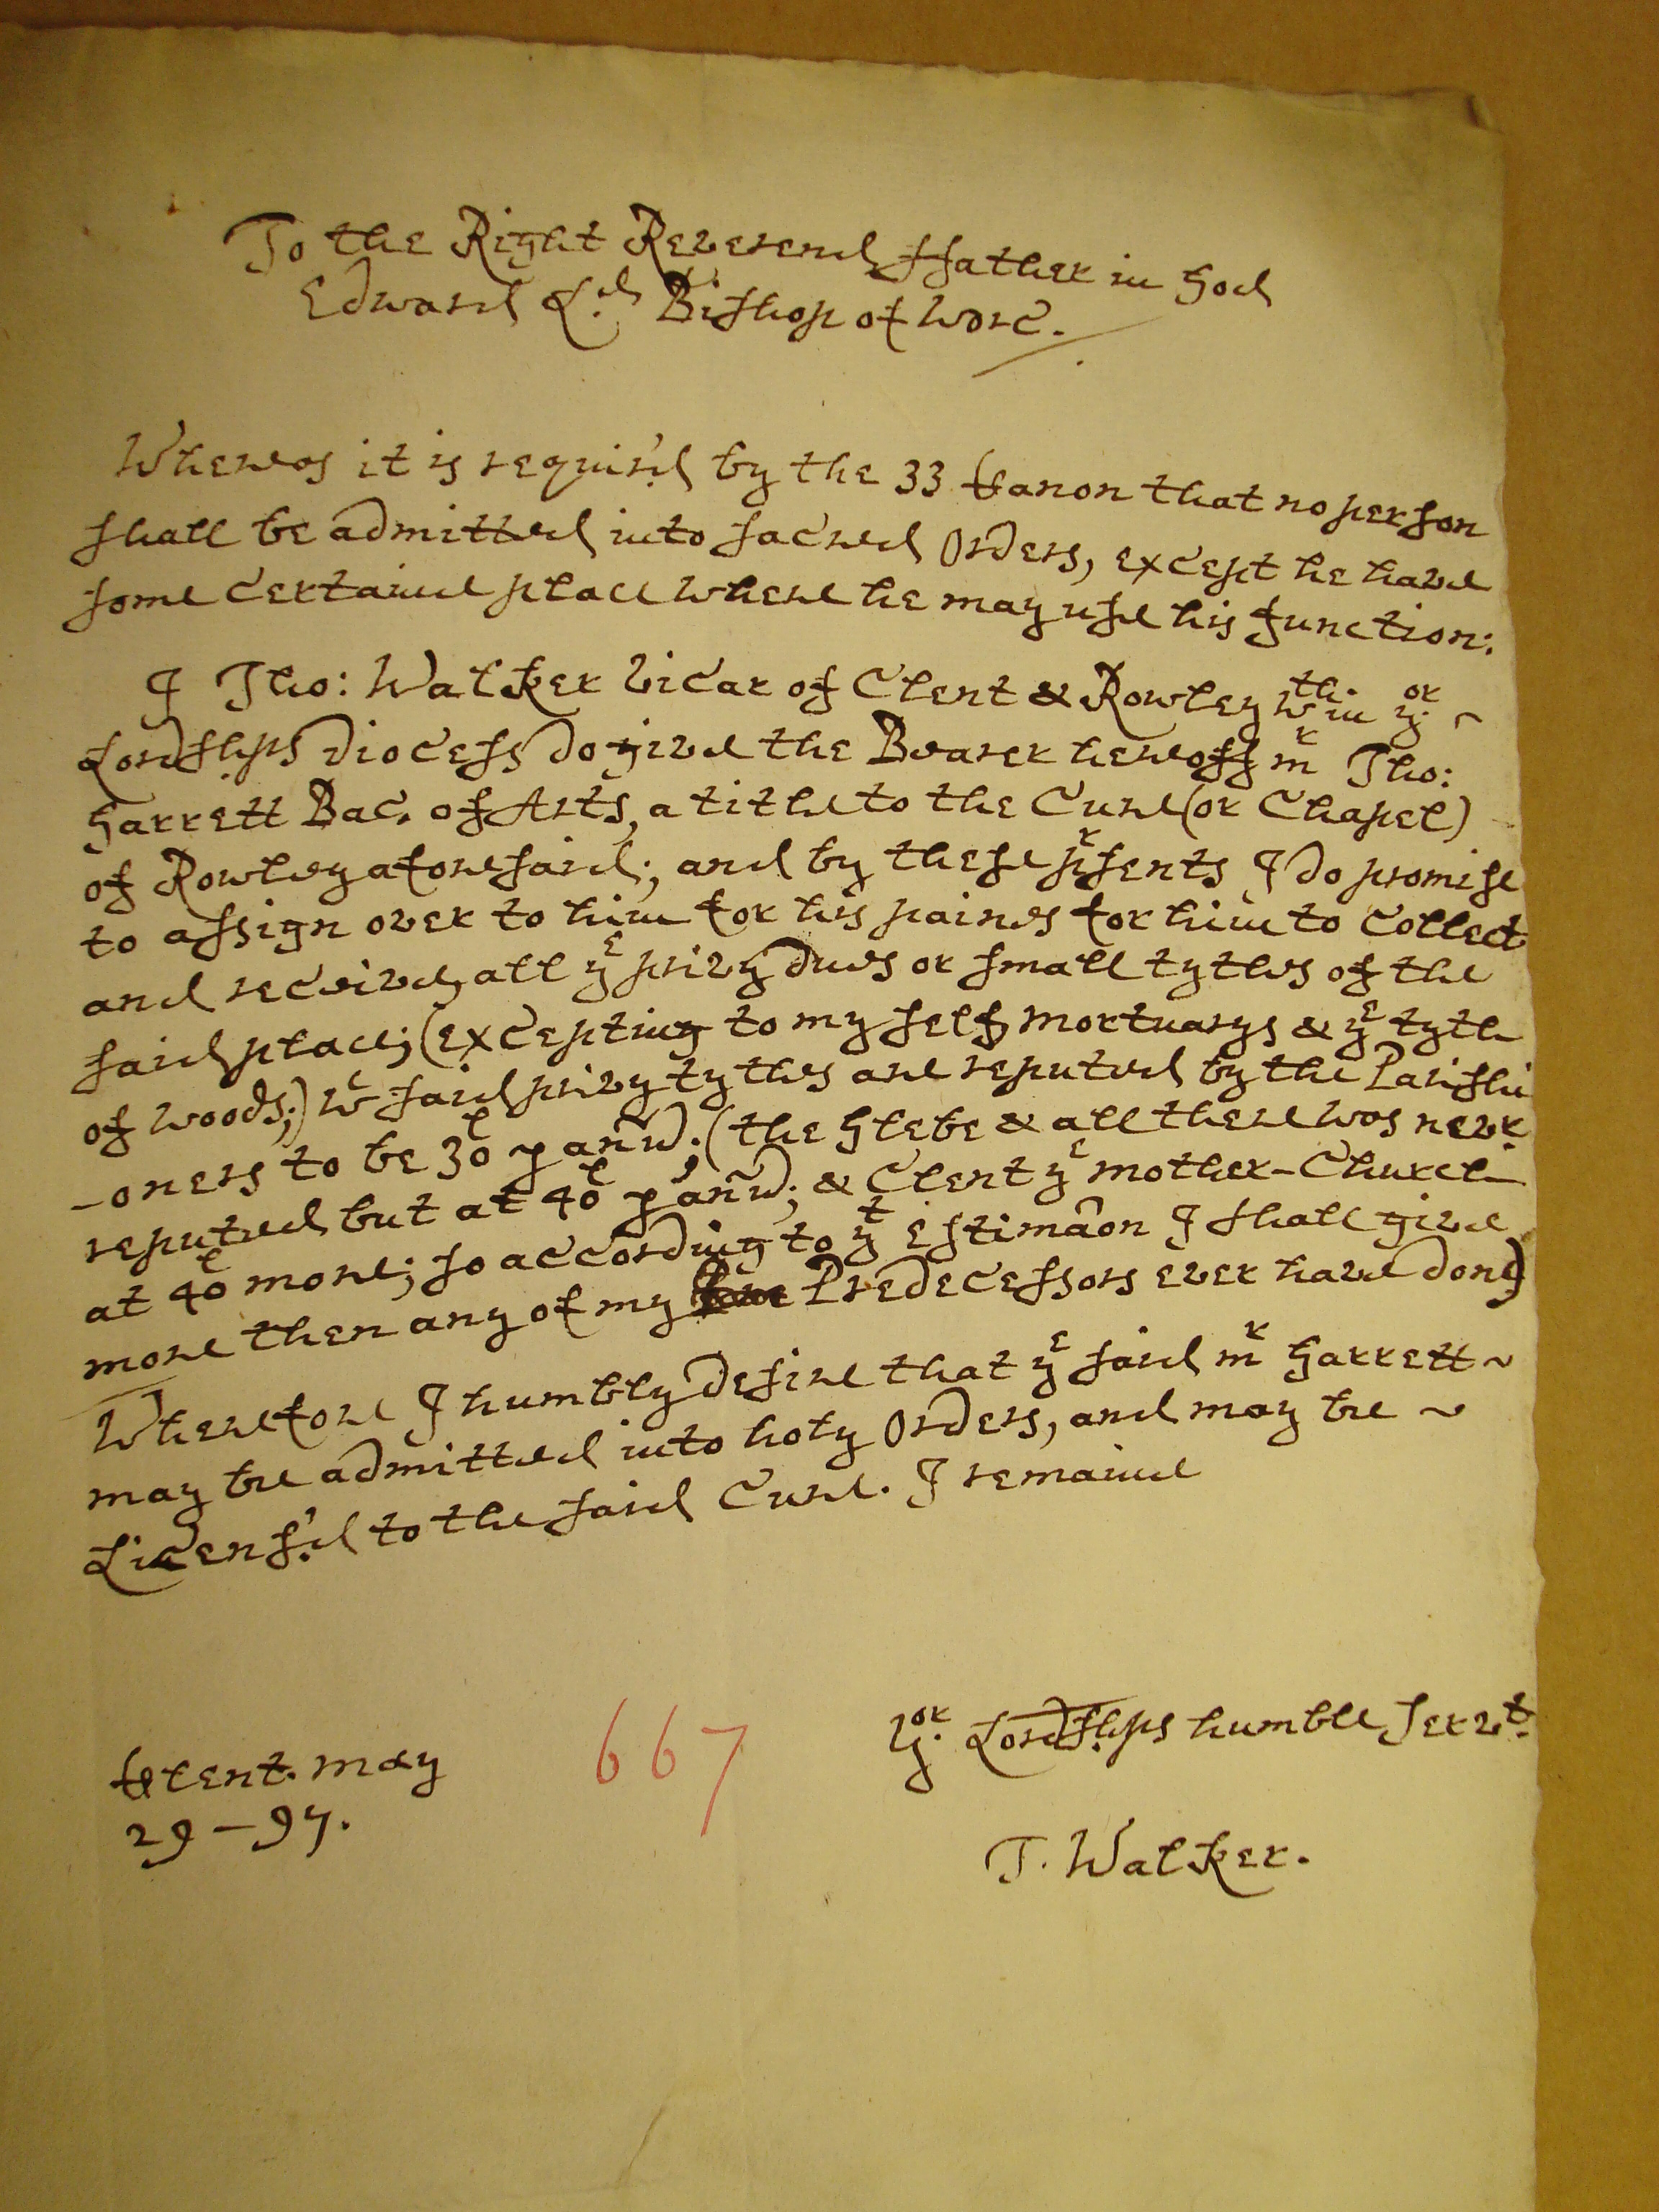 To the Right Reverend ffather in God
Edward Ld. Bishop of Worc.
Whereas it is requir'd by the 33 Canon that no person
shall be admitted into sacred Orders, except he have
some certaine place where he may use his function:
I Tho: Walker Vicar of Clent & Rowley wthin yor
Lordships diocess do give the Bearer hereoff mr Tho:
Garrett Bac. of Arts, a title to the Cure (or Chapel)
of Rowley aforesaid; and by these prsents I do promise
to assign over to him for his paines for him to Collect
and receive, all ye privy dues or small tythes of the
said place; (excepting to my self mortuarys & ye tyth
of woods;) wc said privy tythes are reputed by the Parishi
-oners to be 30l p annũ; (the Glebe & all there was never
reputed but at 40l p annũ; & Clent ye mother-Church
at 40l more; so according to yt estimâon I shall give
more then any of my Predecessors ever have done)
Wherefore I humbly desire that ye said mr Garrett ~
may be admitted into holy Orders, and may be ~
Licens'd to the said Cure. I remaine
Yor Lordships humble Servt.
Clent. may
29 - 97.
667
T. Walker.